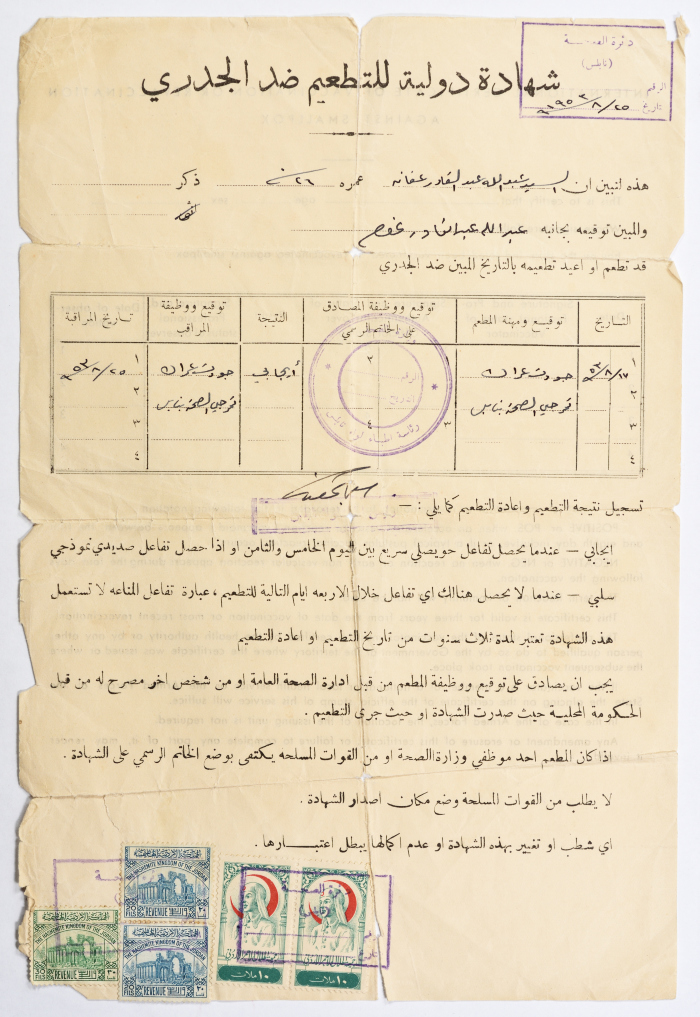 دائرة الصحة
(نابلس)
الرقم
تاريخ ٢٥/٨/١٩٥٣
شهادة دولية للتطعيم ضد الجدري
هذه لنبين ان السيد عبد الله عبد القادر عفانه عمره ٢٦ ذكر
والمبين توقيعه بجانبه عبد الله عبد القادر
قد تطعم او اعيد تطعيمه بالتاريخ المبين ضد الجدري
التاريخ توقيع ومهنة المطعم توقيع ووظيفة المصادق على الخاتم الرسمي النتيجة توقيع ووظيفة المراقب تاريخ المراقبة
١ ١٧/٨/٥٣ جودت ٢ أيجابي جودت ١ ٢٥/٨/٥٣
٢ الصحة نابلس الصحة نابلس ٢
٣ ٣ ٤ ٣
٤ ٤
الرقم
التاريخ
تسجيل نتيجة التطعيم واعادة التطعيم كما يلي : —
ايجابي — عندما يحصل تفاعل حويصلي سريع بين اليوم الخامس والثامن او اذا حصل تفاعل صديدي نموذجي
سلبي — عندما لا يحصل هنالك اي تفاعل خلال الاربعه ايام التالية للتطعيم ، عبارة تفاعل المناعه لا تستعمل
هذه الشهادة تعتبر لمدة ثلاث سنوات من تاريخ التطعيم او اعادة التطعيم
يجب ان يصادق على توقيع ووظيفة المطعم من قبل ادارة الصحة العامة او من شخص اخر مصرح له من قبل
الحكومة المحلية حيث صدرت الشهادة او حيث جرى التطعيم .
اذا كان المطعم احد موظفي وزارة الصحة او من القوات المسلحه يكتفى بوضع الخاتم الرسمي على الشهادة .
لا يطلب من القوات المسلحة وضع مكان اصدار الشهادة .
اي شطب او تغيير بهذه الشهادة او عدم اكمالها يبطل اعتبارها .
المملكة الاردنية الهاشمية
THE HASHEMITE KINGDOM OF THE JORDAN
20 FILS REVENUE ٢٠
المملكة الاردنية الهاشمية
THE HASHEMITE KINGDOM OF THE JORDAN
30 FILS REVENUE ٣٠
THE HASHEMITE KINGDOM OF THE JORDAN
20 FILS REVENUE ٢٠
١٠ ملات
١٠ ملات